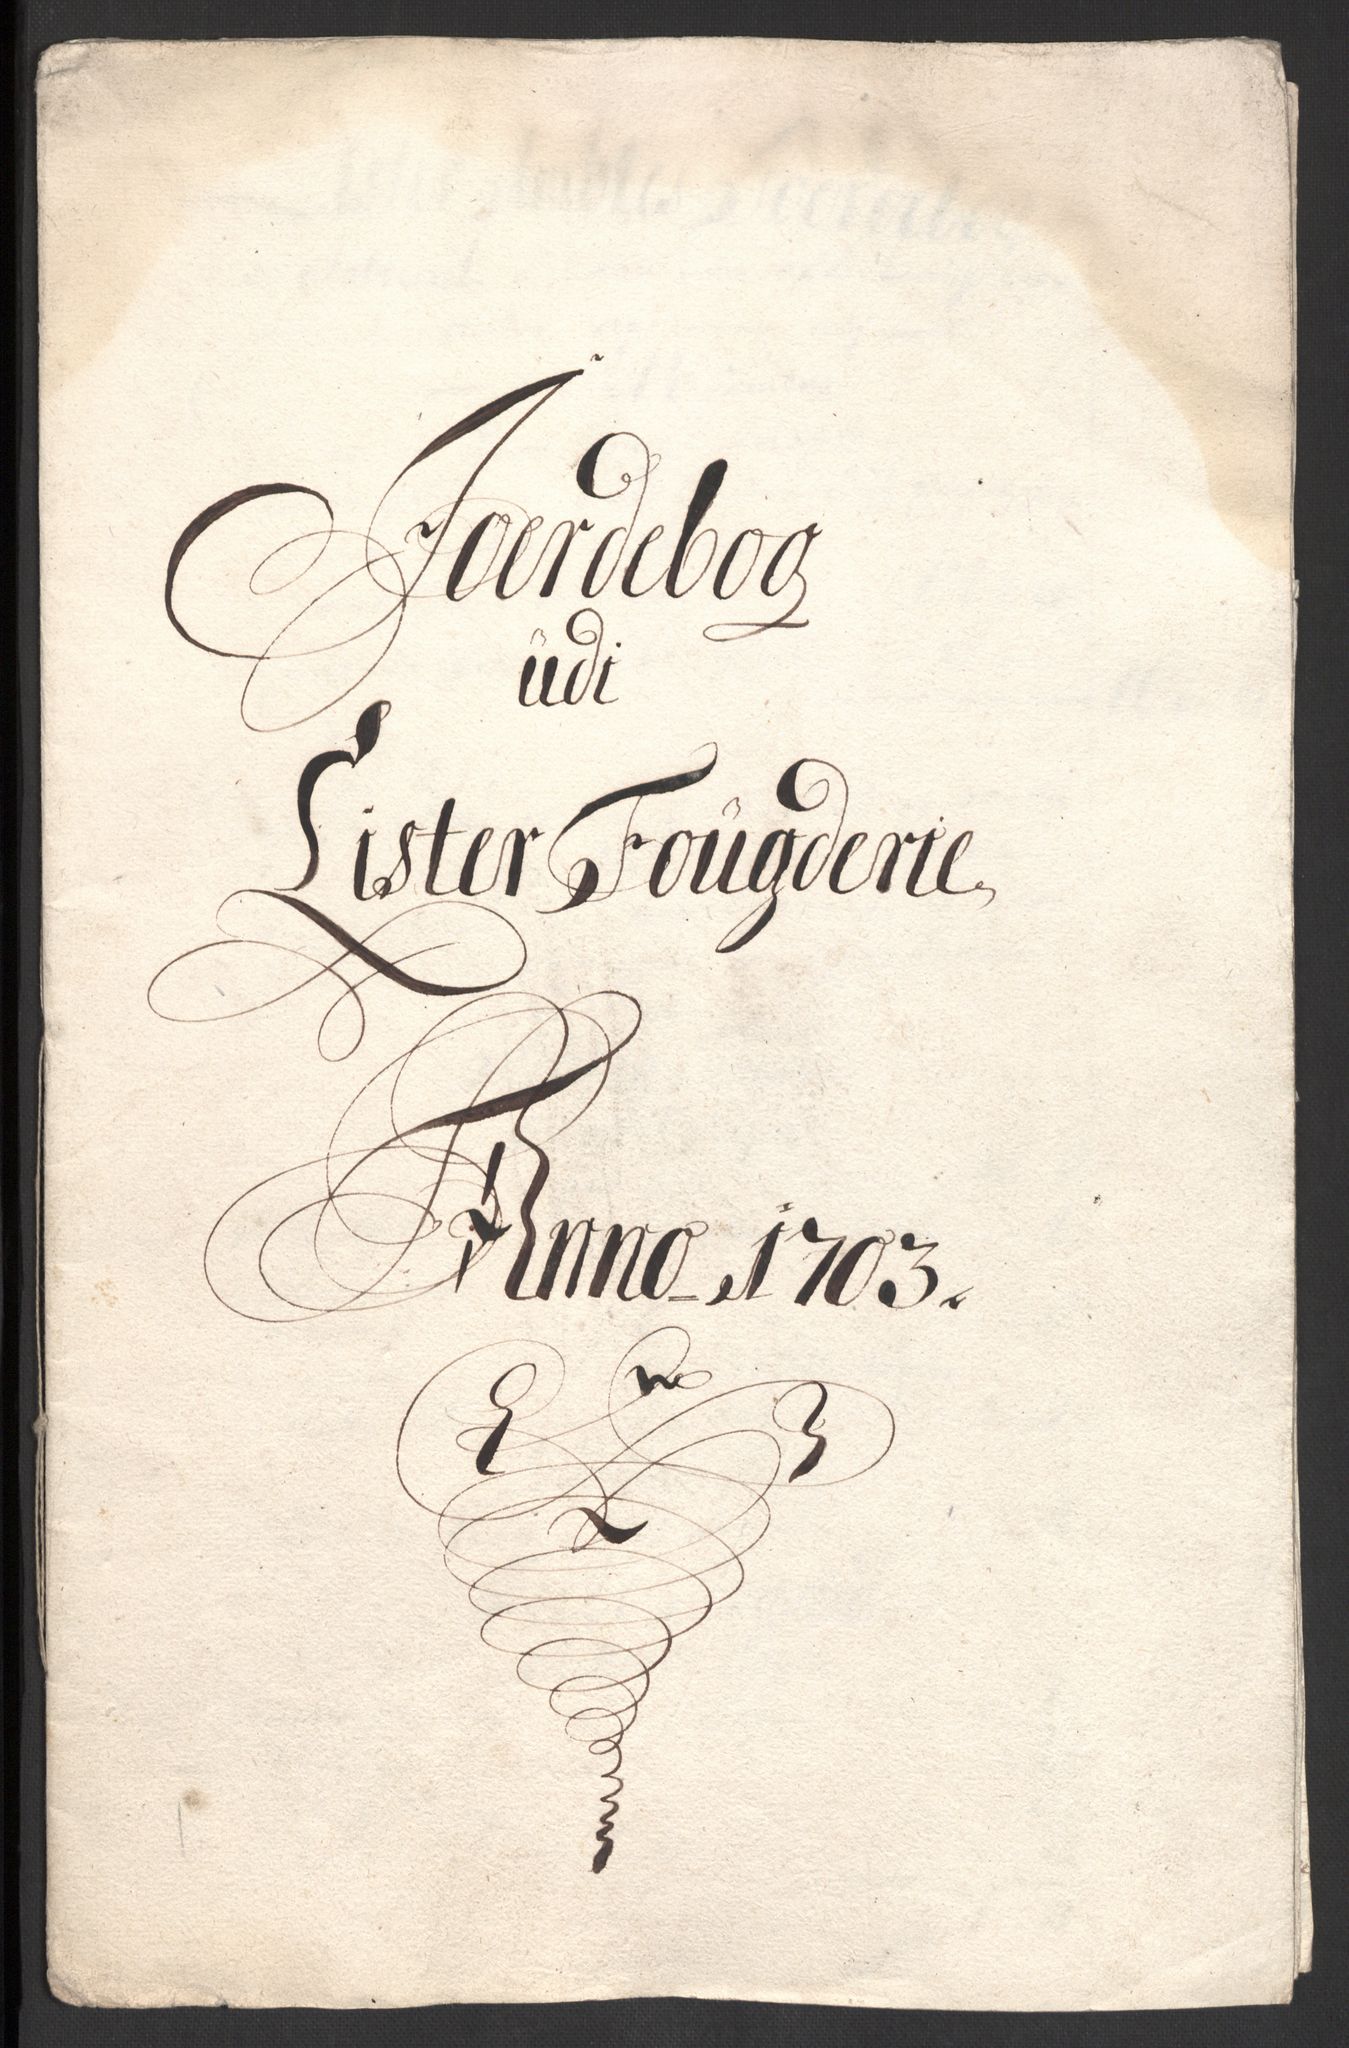 Joerdebog
üdi
Lister Foügderie
Anno 1703.